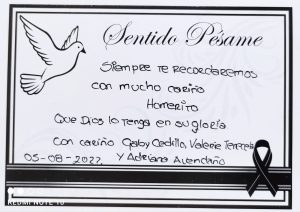 Sentido Pésame
Siempre te recordaremos
con mucho cariño
Homerito
Que Dios lo tenga en su gloria
Con cariño Gaby Cedillo, Valeria
05-08-2022 Y Adriana Avendaño
REDMI NOTE 10